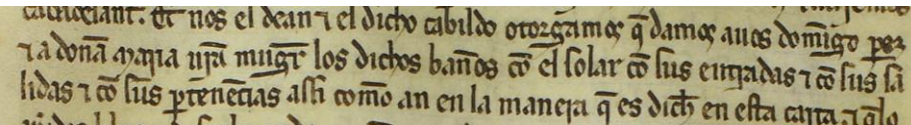 Et nos el dean ⁊ el dicho cabildo otorgamos q̃ damos auos domĩgo perz
⁊ a donã maria ur̃a mugr̃ los dichos bannos cõ el solar cõ sus entradas ⁊ cõ sus sa
lidas ⁊ cõ sus ꝑtenẽcias assi como an en la manera q̃ es dich̃ en esta carta ⁊ q̃ lo